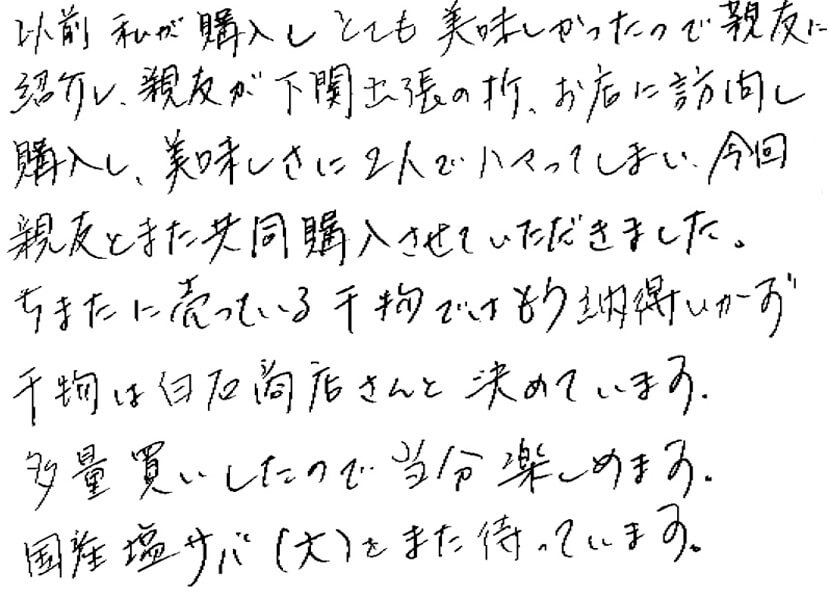 以前私が購入しとても美味しかったので親友に
紹介し、親友が下関出張の折、お店に訪問し
購入し、美味しさに2人でハマってしまい、今回
親友とまた共同購入させていただきました。
ちまたに売っている干物ではもう納得いかず
干物は白石商店さんと決めています。
多量買いしたので当分楽しめます。
国産塩サバ(大)をまた待っています。